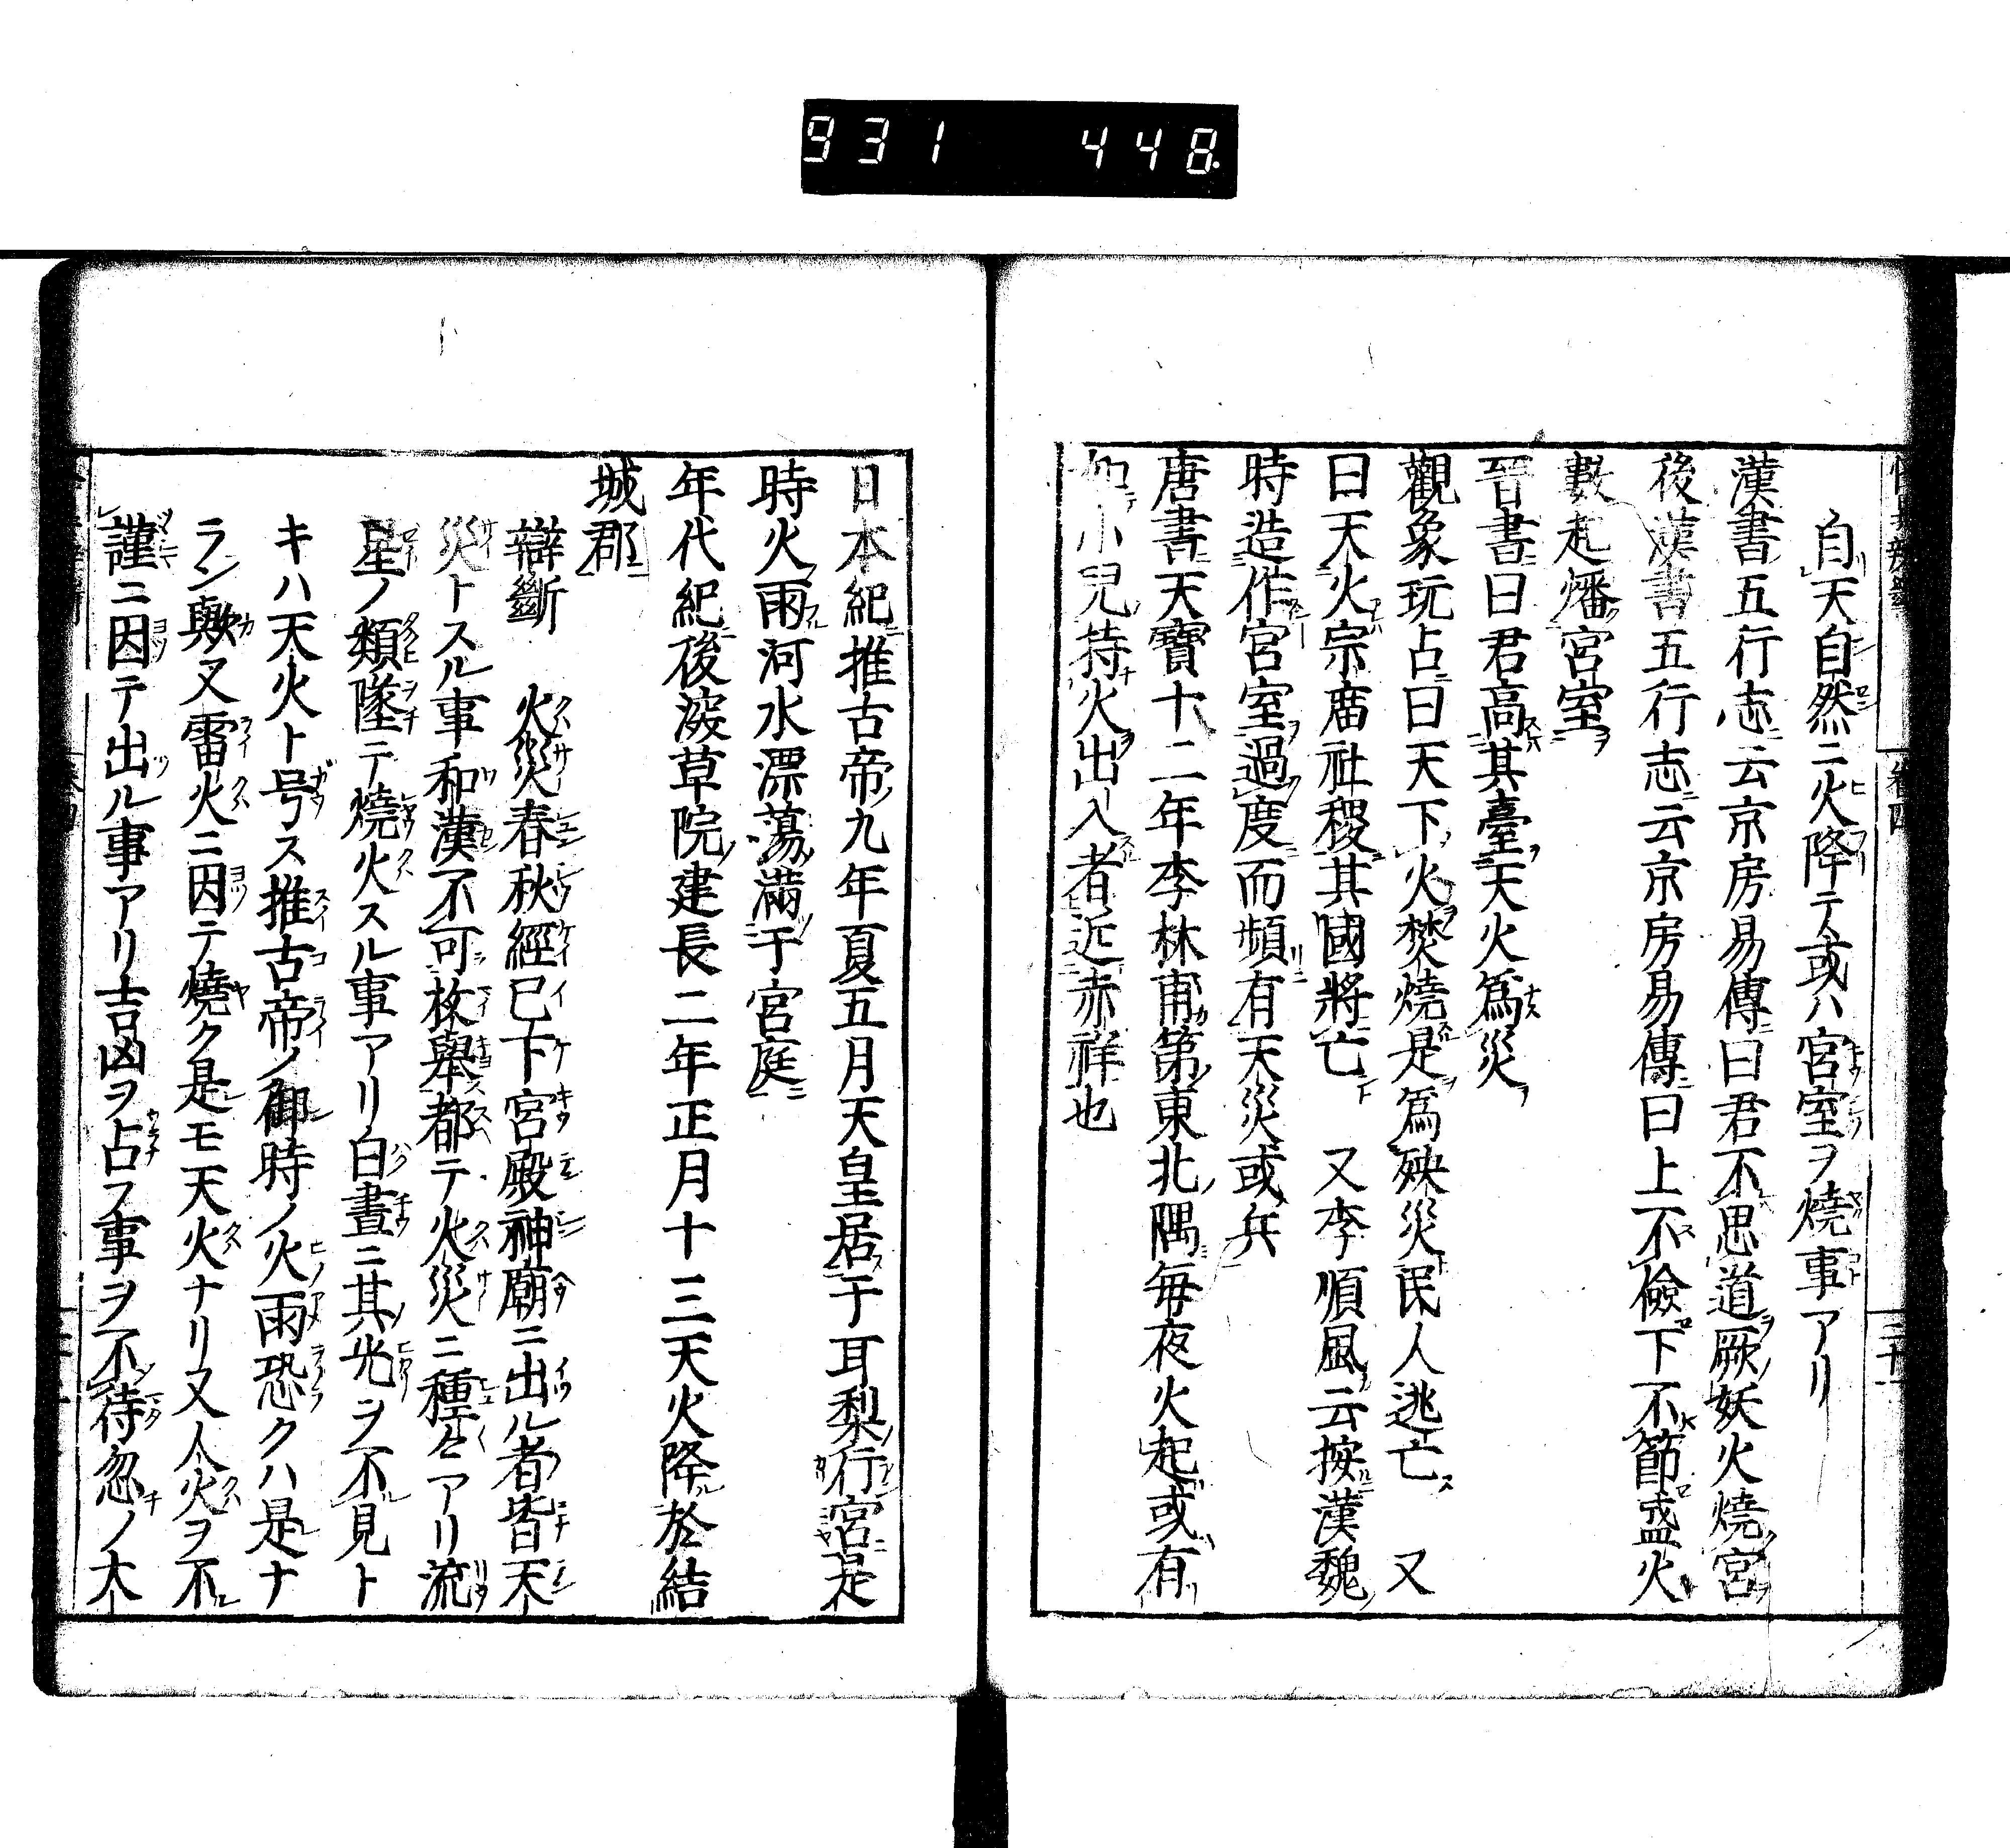 931 448
自天自然ニ火降テ或ハ宮室ヲ燒事アリ
漢書五行志云京房易傳曰君不思道厥妖火燒宮
後漢書五行志云京房易傳曰上不儉下不節盛火
數起燔宮室
晉書曰君高其臺天火爲災
觀象玩占曰天下火焚燒是爲殃災民人逃亡 又
曰天火宗廟社稷其國將亡 又李順風云按漢魏
時造作宮室過度而頻有天災或兵
唐書天寶十二年李林甫第東北隅毎夜火起或有
如小兒持火出入者近赤祥也
日本紀推古帝九年夏五月天皇居于耳梨行宮是
時火雨河水漂蕩滿于宮庭
年代紀後深草院建長二年正月十三天火降於結
城郡
辯斷 火災春秋經已下宮殿神廟ニ出ル者皆天
災トスル事和漢不可枚舉都テ火災ニ種々アリ流
星ノ類墜テ燒火スル事アリ白晝ニ其光ヲ不見ト
キハ天火ト号ス推古帝ノ御時ノ火雨恐クハ是ナ
ラン歟又雷火ニ因テ燒ク是モ天火ナリ又人火ヲ不
謹ニ因テ出ル事アリ吉凶ヲ占ス事ヲ不待忽ノ大